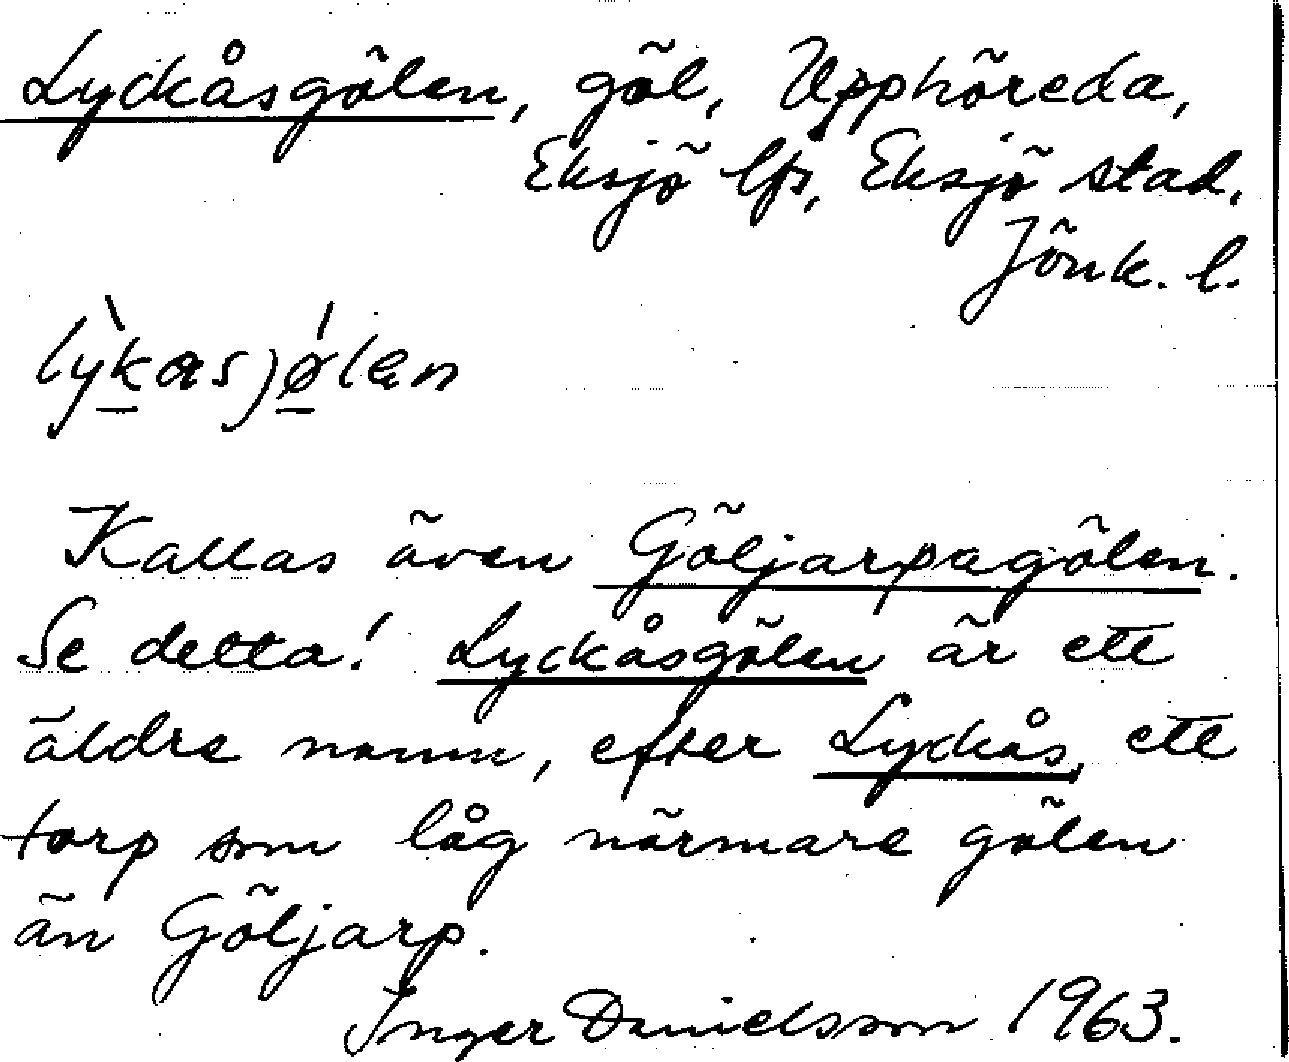 Lyckåsgölen, göl, Upphöreda,
Eksjö lfs, Eksjö stad,
Jönk. l.
lỳkasjǿlen
Kallas även Göljarpagölen.
Se detta! Lyckåsgölen är ett
äldre namn, efter Lyckås, ett
torp som låg närmare gölen
än Göljarp.
Inger Danielsson 1963.